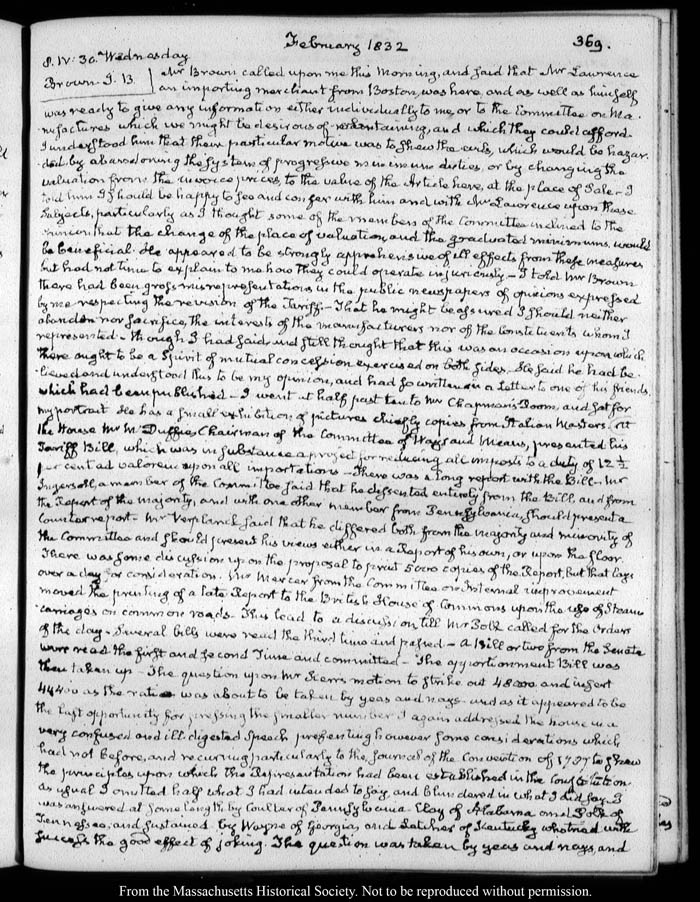 February 1832
369.
8. IV: 30. Wednesday
Brown. J. B.
Mr Brown called upon me this Morning, and said that Mr Lawrence
an importing merchant from Boston, was here, and as well as himself
was ready to give any information either individually to me, or to the Committee on Ma-
nufactures which we might be desirous of ascertaining, and which they could afford.
I understood him that their particular motive was to shew the evils, which would be hazar-
ded, by abandoning the System of progressive minimum duties, or by changing the
valuation from the invoice prices, to the value of the Article here, at the place of Sale. I
told him I should be happy to see and confer with him and with Mr Lawrence upon these
subjects, particularly as I thought some of the members of the Committee inclined to the
opinion that the change of the place of valuation, and the graduated minimums, would
be beneficial. He appeared to be strongly apprehensive of ill effects from these measures
but had not time to explain to me how they could operate injuriously. I told Mr Brown
there had been gross misrepresentations in the public newspapers of opinions expressed
by me respecting the revision of the Tariff. That he might be assured I should neither
abandon nor sacrifice, the interests of the manufacturers nor of the Constituents whom I
represented. though I had said and still thought that this was an occasion upon which
there ought to be a Spirit of mutual concession exercised on both sides. He said he had be-
lieved and understood this to be my opinion, and had so written in a Letter to one of his friends,
which had been published. I went at half past ten to Mr Chapman's Room, and sat for
my portrait. He has a small exhibition of pictures chiefly copies from Italian Masters. At
the House Mr McDuffie, Chairman of the Committee of Ways and Means, presented his
Tariff Bill, which was in substance a project for reducing all imposts to a duty of 12 ½
per cent ad valorem upon all importations. There was a long report with the Bill. Mr
Ingersoll, a member of the Committee said that he dissented entirely from the Bill, and from
the Report of the majority, and with one other member from Pennsylvania, should present a
Counter report. Mr Verplanck said that he differed both from the majority and minority of
the Committee and should present his views either in a Report of his own, or upon the floor.
There was some discussion upon the proposal to print 5000 copies of the Report, but that lays
over a day for consideration. Mr Mercer from the Committee on Internal improvement
moved the printing of a late Report to the British House of Commons upon the use of Steam
carriages on common roads. This lead to a discussion till Mr Polk called for the Orders
of the day. Several bills were read the third time and passed. A Bill or two from the Senate
were read the first and second Time and committed. The apportionment Bill was
then taken up. The question upon Mr Kerr's motion to strike out 48000 and insert
44400 as the ratio was about to be taken by yeas and nays. and as it appeared to be
the last opportunity for pressing the smaller number I again addressed the House in a
very confused and ill digested Speech presenting however some considerations which
had not before, and recurring particularly to the Journal of the Convention of 1787 to shew
the principles upon which the Representation had been established in the Constitution.
As usual I omitted half what I had intended to say, and blundered in what I did say. I
was answered at some length by Coulter of Pennsylvania. Clay of Alabama and Polk of
Tennessee, and sustained by Wayne of Georgia, and Letcher of Kentucky who tried with
success the good effect of joking. The question was taken by yeas and nays, and
From the Massachusetts Historical Society. Not to be reproduced without permission.